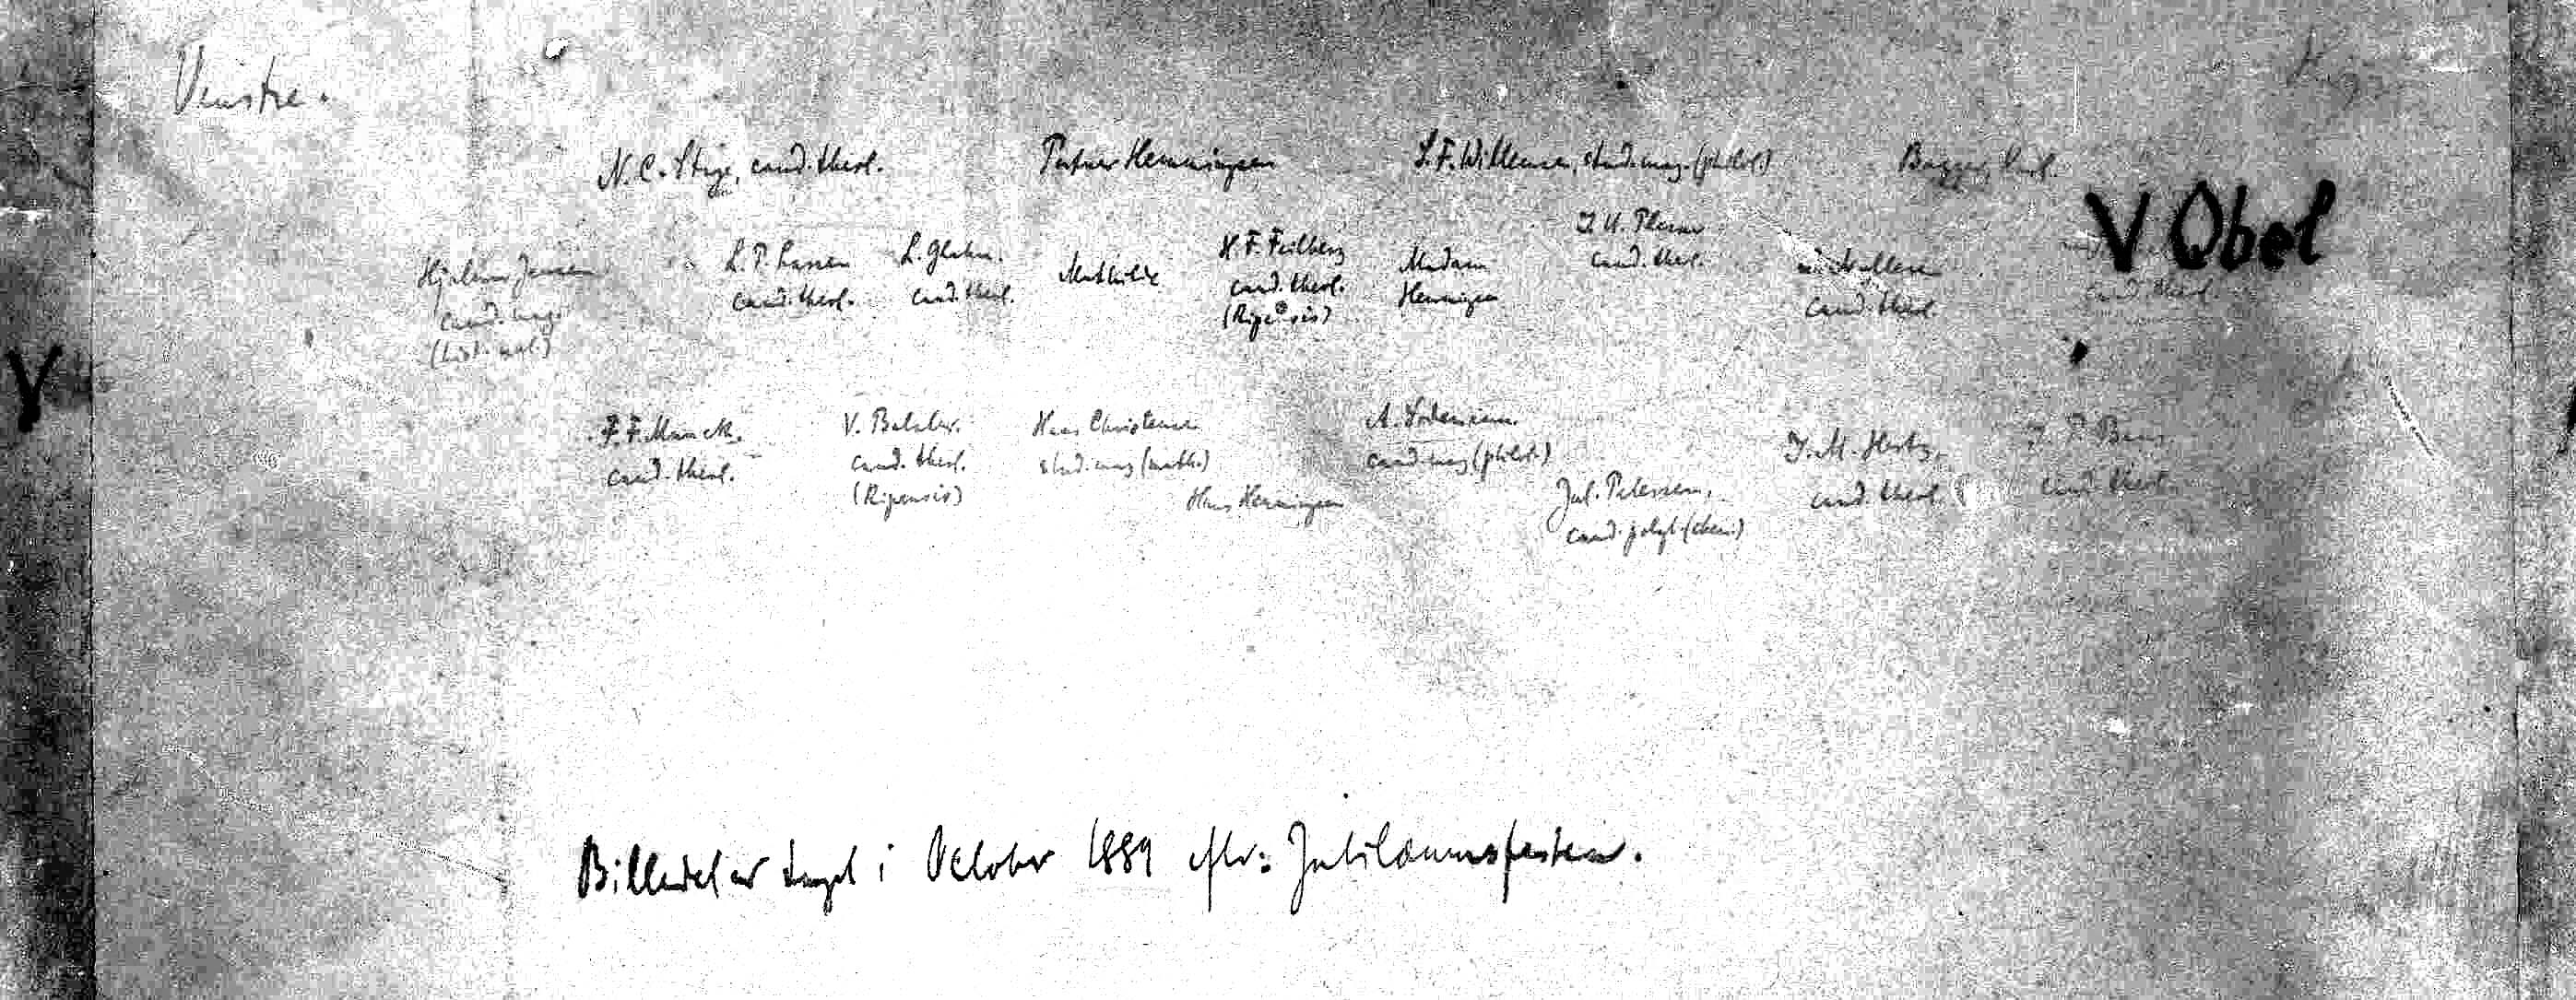 Venstre.
N. C. Stige, cand. theol. Portner Henningsen S. F. Willemsen, stud. mag. (philol.) Bagger,
V Obel
Hjalmar Jensen L. P. Larsen L. Glahn. Mathilde H. F. Feilberg Madam J. U. Plesner
cand. mag. cand. theol. cand. theol. cand. theol. Henningsen cand. theol. cand. theol. cand. theol.
(hist. nat.) (Ripensis)
F. F. Munck. V. Balslev. Hans Christensen A. J. M. Hertz.
cand. theol. cand. theol. stud. mag (math.) cand. mag (philol.) Jul. Petersen, cand. theol. cand. theol.
(Ripensis) Hans Henningsen cand. polyt. (chem.)
V
Billedet er taget i October 1889 eftr: Jubilæumsfesten.